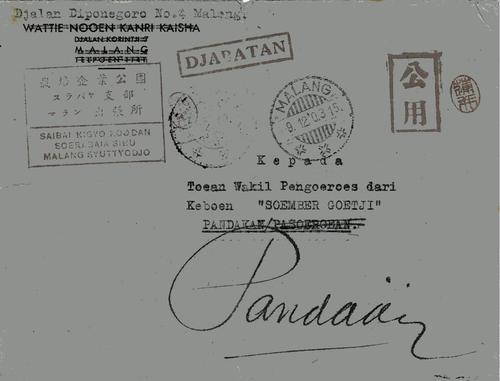 Djalan Diponegoro No.4 Malang.
WATTIE NOOEN KANRI KAISHA
DJALAN KORINTJI 7
MALANG
TELFOEN
DJABATAN
栽培企業公團
スラバヤ支部
マラン出張所
SAIBAI KIGYO KOODAN
SOERABAIA SIBU
MALANG SYUTTYODJO
MALANG
9.12.03 15
公用
Kepada
Toean Wakil Pengoeroes dari
Keboen "SOEMBER GOETJI"
PANDAKAN/PASOEROEAN.
Pandaän